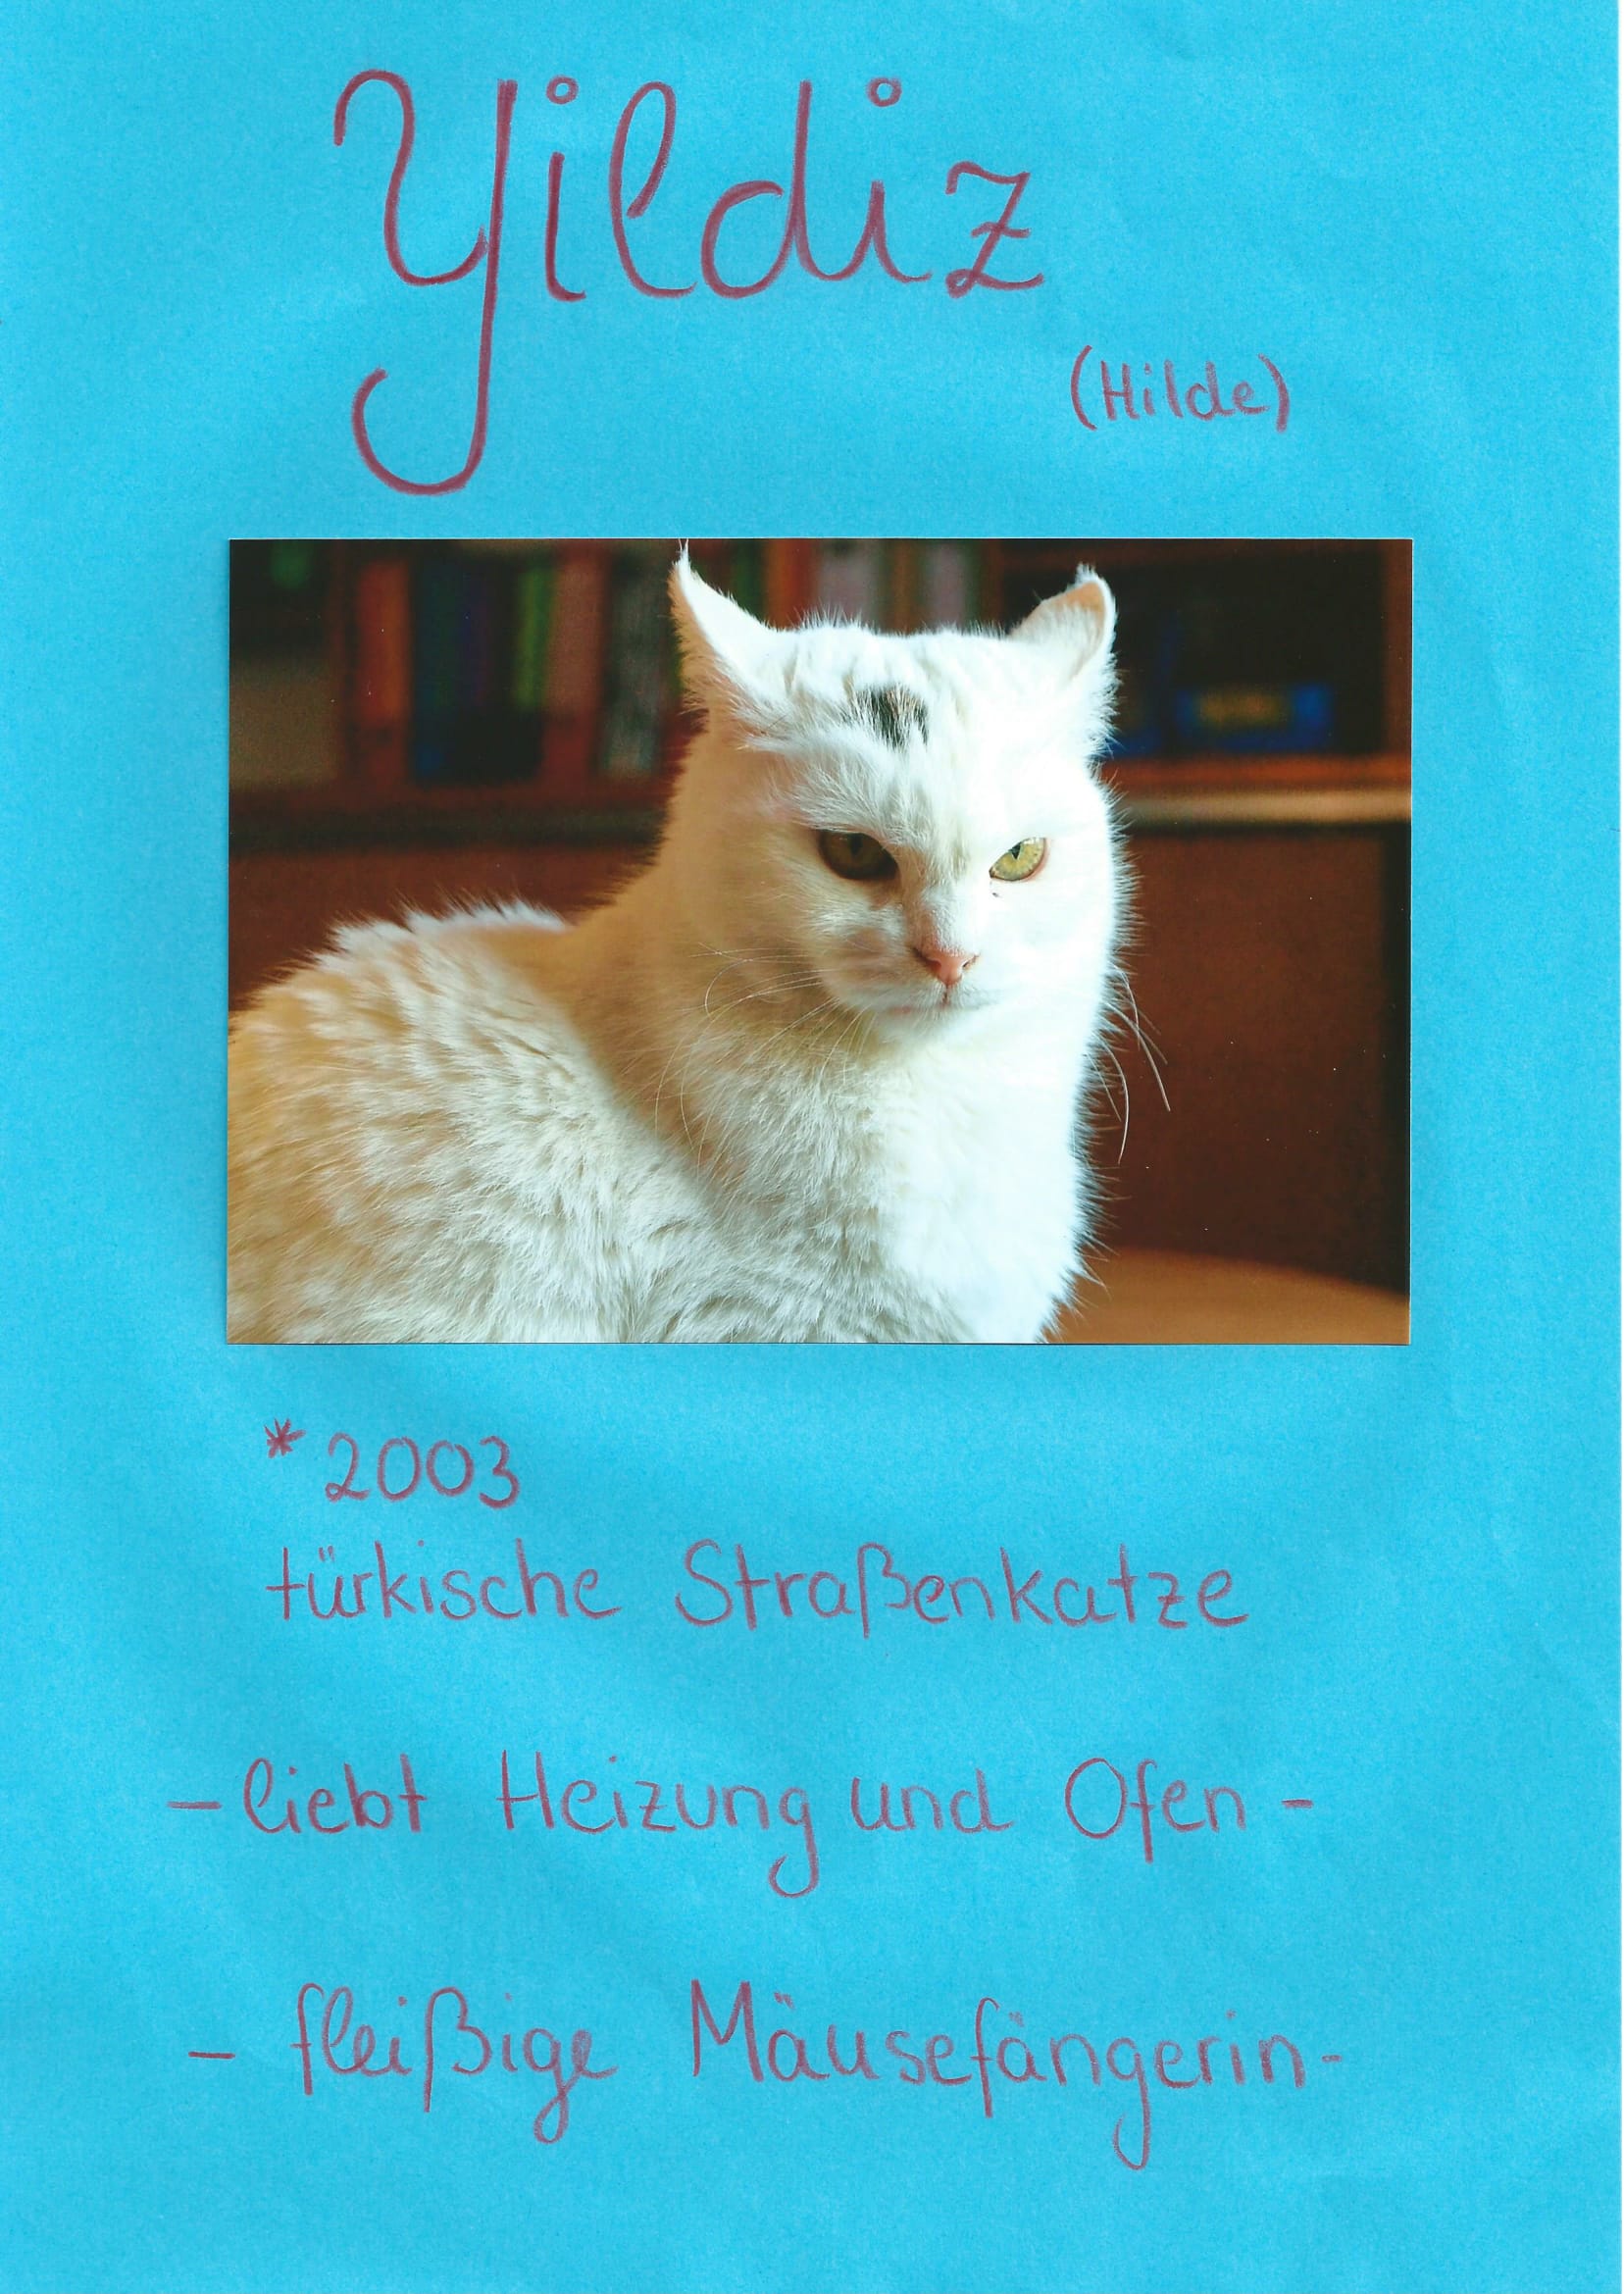 Yildiz
(Hilde)
*2003
türkische Straßenkatze
- liebt Heizung und Ofen -
- fleißige Mäusefängerin -